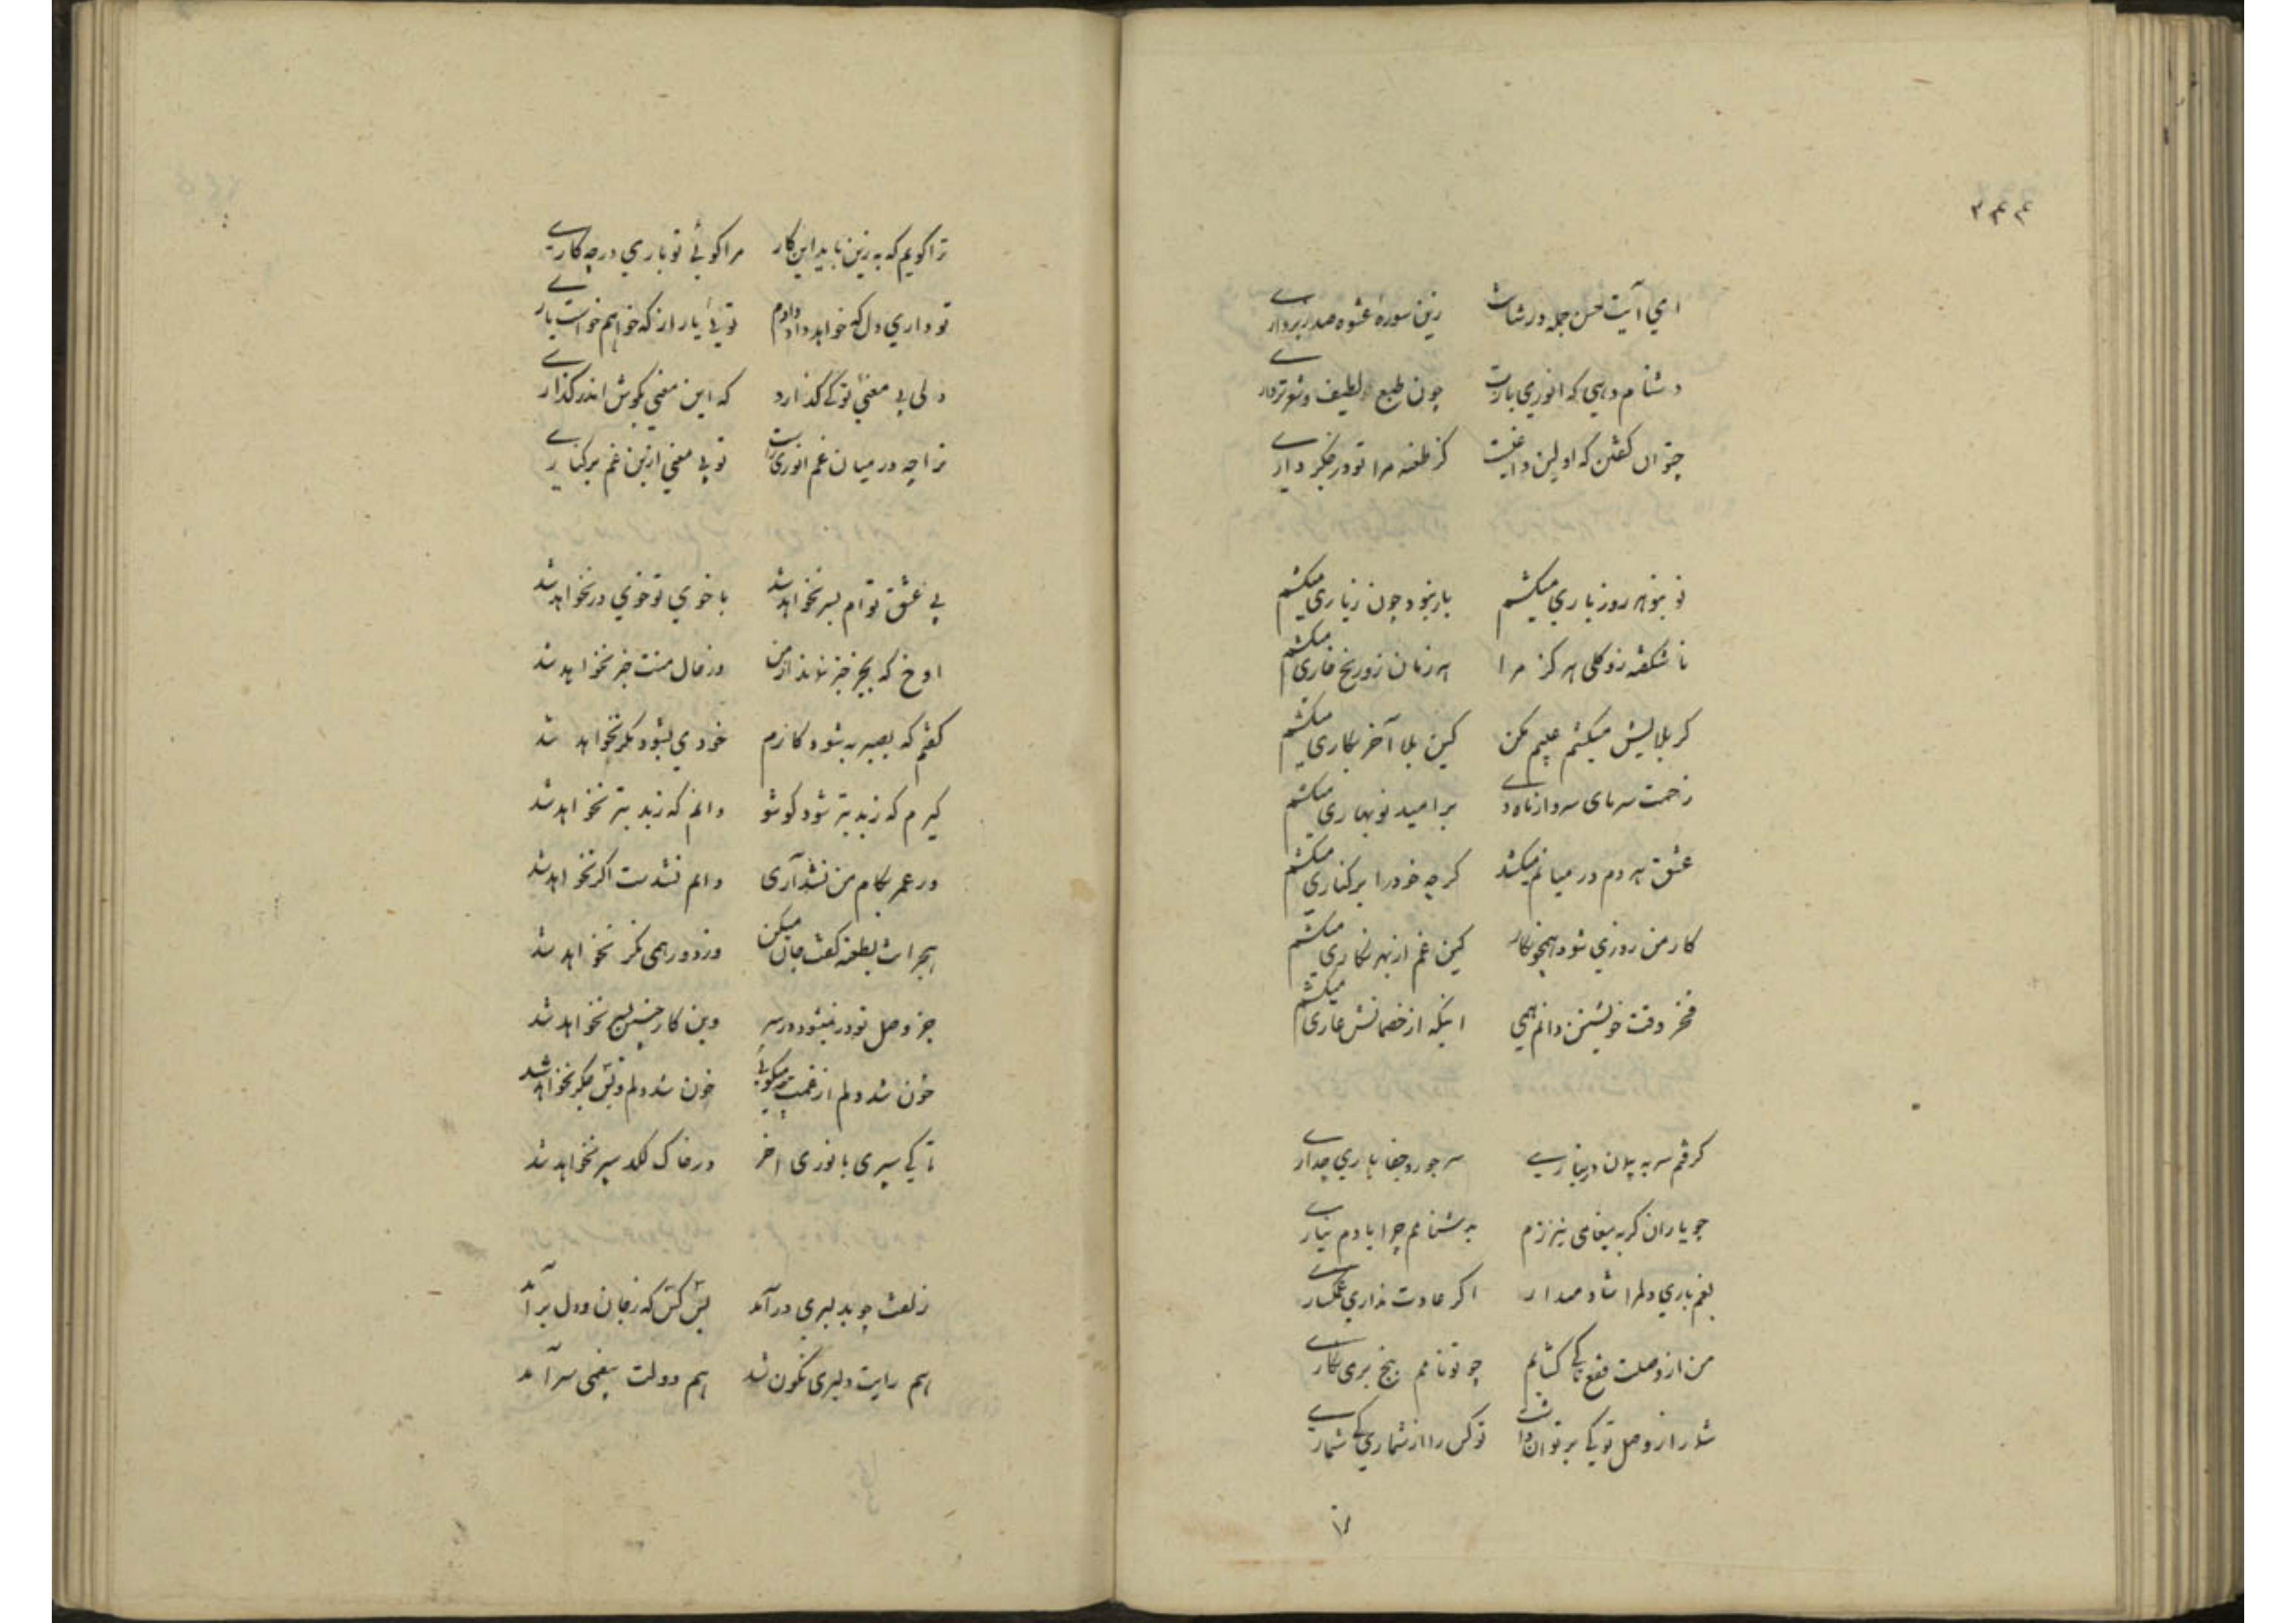 ۳۴۴
ای آیت حسن جمله در شانت زین سوره عشوه صد زبرداری
دشنام دهی که انوری یارت چون طبع لطیف و شعر تر داری
چتوان گفتن که اولین داغست کز طعنه مرا تو در جگر داری
نو بنو هر روز باری میکشم بار نبود چون زیاری میکشم
ناشکفته زو گلی هرگز مرا هر زمان زو رنج خاری میکشم
گر بلایش میکشم عیبم مکن کین بلا آخر بکاری میکشم
زحمت سرمای سرد از ماه دی بر امید نوبهاری میکشم
عشق هر دم در میانم میکشد گرچه خود را بر کناری میکشم
کار من روزی شود همچون نگار کین غم از بهر نگاری میکشم
فخر وقت خویشتن دانم همی اینکه از خصمانش عاری میکشم
گرفتم سر به پیمان در نیاری سر جور و جفا باری چه داری
چو یاران گر به پیغامی نیرزم به دشنامم چرا یادم نیاری
بغم باری دلم را شاد میدار اگر عادت نداری غمگساری
من از وصلت فقع تا کی گشایم چو تو نامم بیخ بری نگاری
شمار از وصل تو کی بر توان داشت تو کس را از شماری کی شماری
ترا گویم که به زین باید این کار مرا گوئی تو باری در چه کاری
تو داری دل که خواهد داد دادم توئی یار از که خواهم خواست یاری
ولی بی معنئی تو کی گذارد که این معنی بگوش اندر گذاری
ترا چه در میان غم انوری راست تو بی معنی ازین غم بر کناری
بی عشق توام بسر نخواهد شد با خوی تو خوی در نخواهد شد
اوخ که بجز خبر نماند از من وز حال منت خبر نخواهد شد
گفتم که بصبر به شود کارم خود می نشود مگر نخواهد شد
گیرم که ز بد بتر شود گو شو دانم که ز بد بتر نخواهد شد
در عمر بکام من نشد آری دانم نشدست اگر نخواهد شد
هجرانت بطعنه گفت جان میکن وز دور همی نگر نخواهد شد
جز وصل تو در نمیشود در سر وین کار چنین بسر نخواهد شد
خون شد دلم از غمت چه میگوئی خون شد دلم و جگر نخواهد شد
تا کی سپری با نوری آخر در خاک لگد سپر نخواهد شد
زلفت چو به دلبری درآمد بس کس که ز جان و دل برآمد
هم رایت دلبری نگون شد هم دولت بیغمی سرآمد